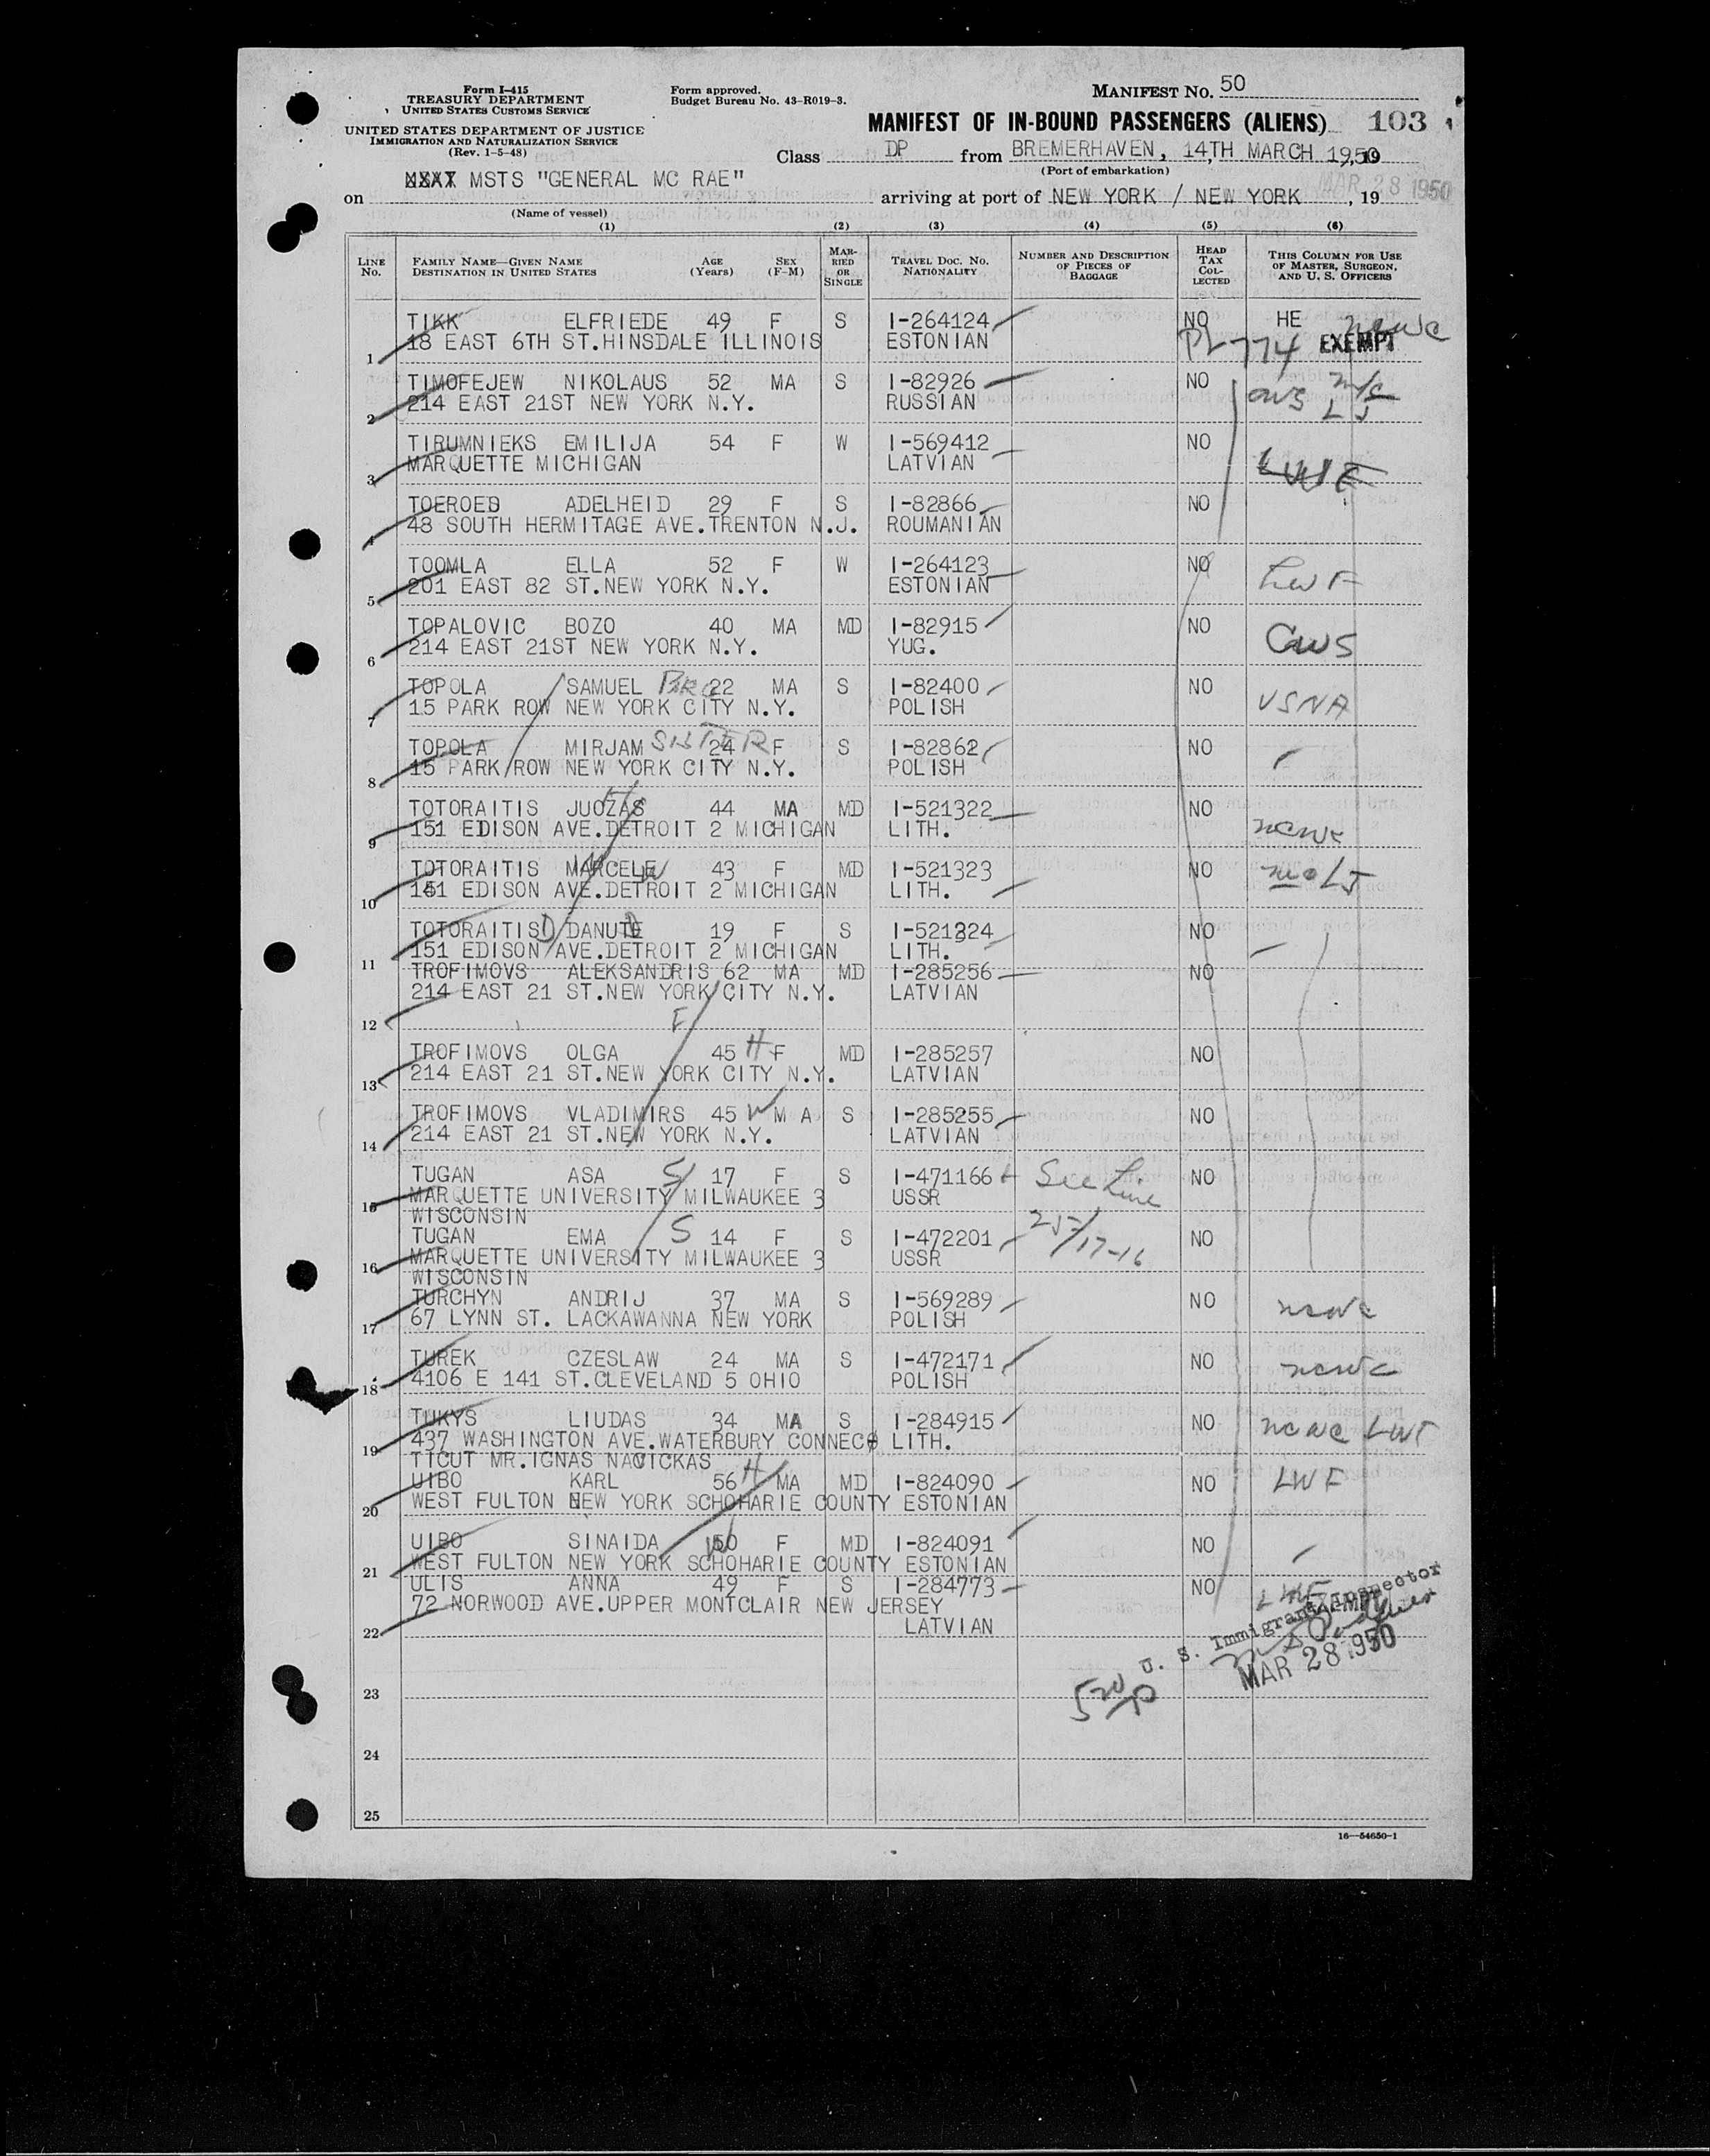 Form I-415
TREASURY DEPARTMENT
UNITED STATES CUSTOMS SERVICE
UNITED STATES DEPARTMENT OF JUSTICE
IMMIGRATION AND NATURALIZATION SERVICE
(Rev. 1-5-48)
Form approved.
Budget Bureau No. 43-R019-3.
MANIFEST NO. 50
MANIFEST OF IN-BOUND PASSENGERS (ALIENS) 103
Class DP from BREMERHAVEN, 14,TH MARCH 1950, 19
(Port of embarkation)
MAR 28 1950
on MSTS "GENERAL MC RAE" arriving at port of NEW YORK / NEW YORK, 19
(Name of vessel)
(1) (2) (3) (4) (5) (6)
LINE NO. FAMILY NAME—GIVEN NAME DESTINATION IN UNITED STATES AGE (Years) SEX (F-M) MARRIED OR SINGLE TRAVEL DOC. NO. NATIONALITY NUMBER AND DESCRIPTION OF PIECES OF BAGGAGE HEAD TAX COLLECTED THIS COLUMN FOR USE OF MASTER, SURGEON, AND U. S. OFFICERS
TIKK ELFRIEDE 49 F S I-264124 NO HE ncwc
1 18 EAST 6TH ST.HINSDALE ILLINOIS ESTONIAN PL 774 EXEMPT
TIMOFEJEW NIKOLAUS 52 MA S I-82926 NO
2 214 EAST 21ST NEW YORK N.Y. RUSSIAN
TIRUMNIEKS EMILIJA 54 F W I-569412 NO
3 MARQUETTE MICHIGAN LATVIAN LWF
TOEROEB ADELHEID 29 F S I-82866 NO
4 48 SOUTH HERMITAGE AVE.TRENTON N.J. ROUMANIAN
TOOMLA ELLA 52 F W I-264123 NO
5 201 EAST 82 ST.NEW YORK N.Y. ESTONIAN LWF
TOPALOVIC BOZO 40 MA MD I-82915 NO
6 214 EAST 21ST NEW YORK N.Y. YUG. CWS
TOPOLA SAMUEL BRO 22 MA S I-82400 NO
7 15 PARK ROW NEW YORK CITY N.Y. POLISH USNA
TOPOLA MIRJAM SISTER 24 F S I-82862 NO
8 15 PARK ROW NEW YORK CITY N.Y. POLISH
TOTORAITIS JUOZAS H 44 MA MD I-521322 NO
9 151 EDISON AVE.DETROIT 2 MICHIGAN LITH. ncwc
TOTORAITIS MARCELE W 43 F MD I-521323 NO
10 151 EDISON AVE.DETROIT 2 MICHIGAN LITH.
TOTORAITIS D DANUTE 19 F S I-521324 NO
11 151 EDISON AVE.DETROIT 2 MICHIGAN LITH.
TROFIMOVS ALEKSANDRIS 62 MA MD I-285256 NO
214 EAST 21 ST.NEW YORK CITY N.Y. LATVIAN
12
TROFIMOVS OLGA 45 H F MD I-285257 NO
13 214 EAST 21 ST.NEW YORK CITY N.Y. LATVIAN
TROFIMOVS VLADIMIRS 45 W M A S I-285255 NO
14 214 EAST 21 ST.NEW YORK N.Y. LATVIAN
TUGAN ASA S 17 F S I-471166 See Line NO
15 MARQUETTE UNIVERSITY MILWAUKEE 3 USSR
WISCONSIN
TUGAN EMA S 14 F S I-472201 25/17-16 NO
16 MARQUETTE UNIVERSITY MILWAUKEE 3 USSR
WISCONSIN
TURCHYN ANDRIJ 37 MA S I-569289 NO ncwc
17 67 LYNN ST. LACKAWANNA NEW YORK POLISH
TUREK CZESLAW 24 MA S I-472171 NO ncwc
18 4106 E 141 ST.CLEVELAND 5 OHIO POLISH
TUKYS LIUDAS 34 MA S I-284915 NO ncwc
19 437 WASHINGTON AVE.WATERBURY CONNEC LITH.
TICUT MR.IGNAS NAVICKAS
UIBO KARL 56 H MA MD I-824090 NO LWF
20 WEST FULTON NEW YORK SCHOHARIE COUNTY ESTONIAN
UIBO SINAIDA 50 W F MD I-824091 NO
21 WEST FULTON NEW YORK SCHOHARIE COUNTY ESTONIAN
ULIS ANNA 49 F S I-284773 NO LWF
72 NORWOOD AVE.UPPER MONTCLAIR NEW JERSEY
22 LATVIAN
U. S. Immigrant Inspector
MAR 28 1950
23
24
25
16—54650-1